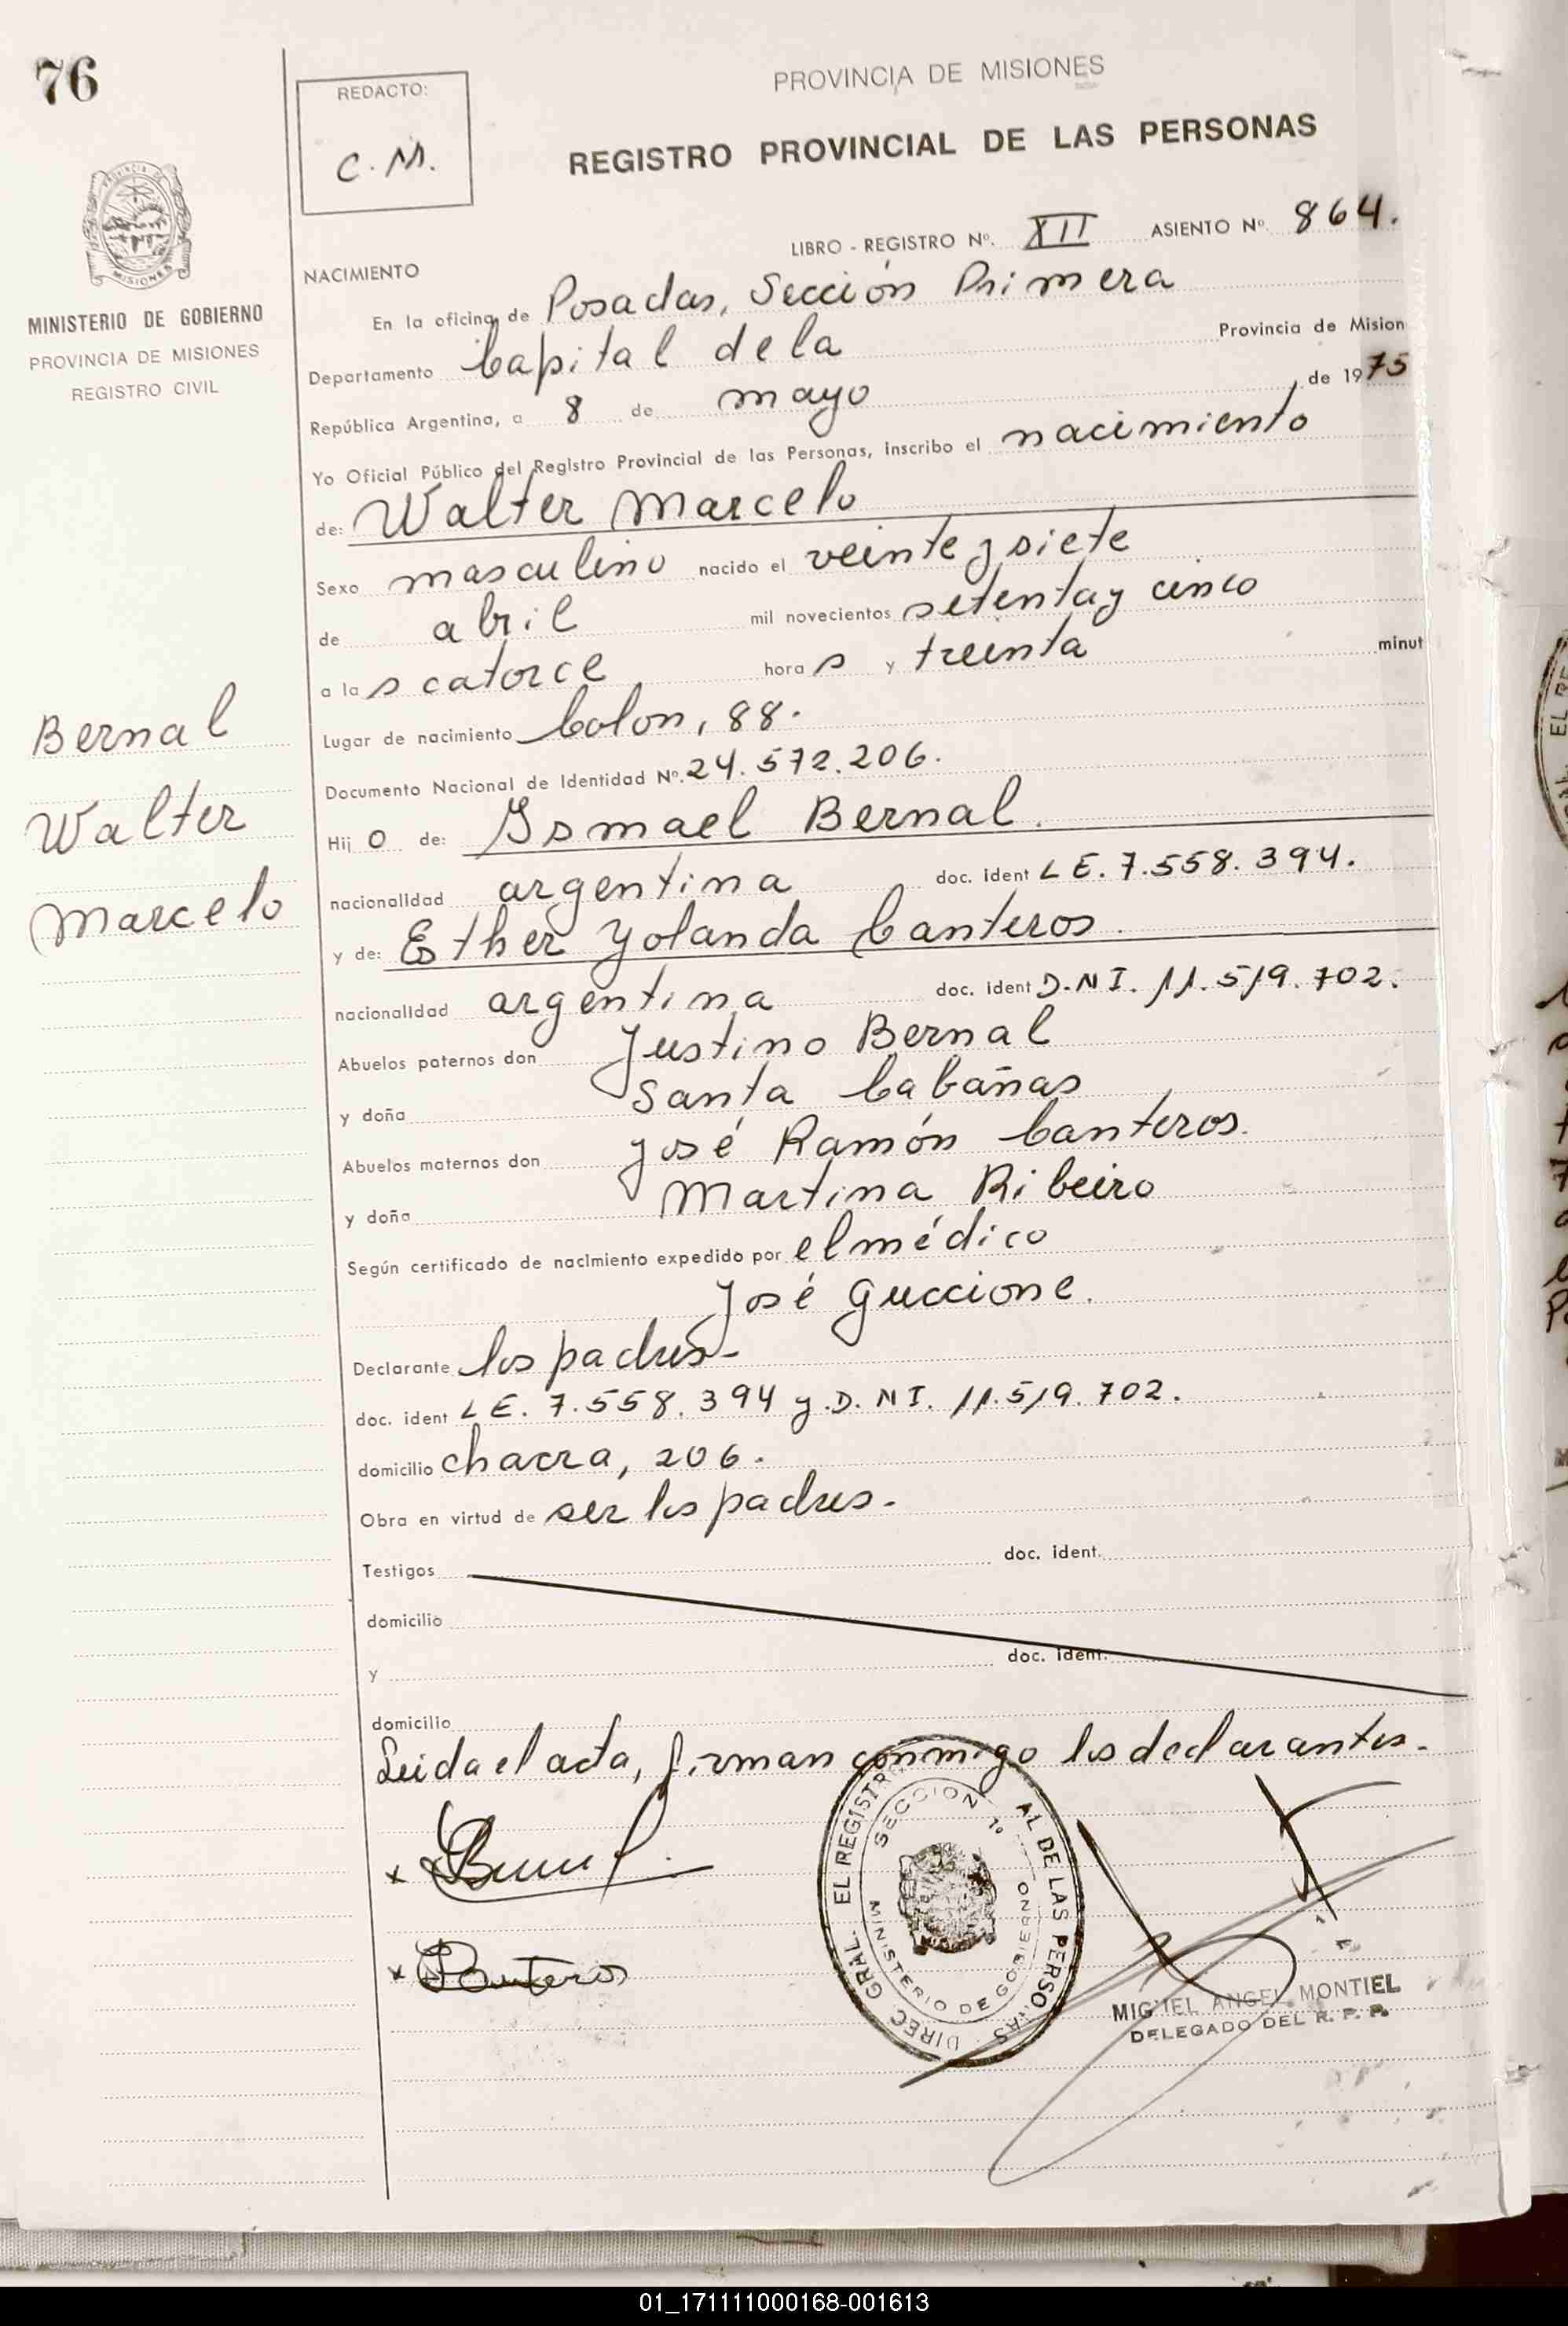 76
REDACTO:
C. M.
PROVINCIA DE MISIONES
REGISTRO PROVINCIAL DE LAS PERSONAS
PROVINCIA DE
MISIONES
MINISTERIO DE GOBIERNO
PROVINCIA DE MISIONES
REGISTRO CIVIL
LIBRO - REGISTRO Nº. XII ASIENTO Nº. 864.
NACIMIENTO
En la oficina de Posadas, Sección Primera
Departamento Capital de la Provincia de Mision
República Argentina, a 8 de mayo de 1975
Yo Oficial Público del Registro Provincial de las Personas, inscribo el nacimiento
de: Walter Marcelo
Sexo masculino nacido el veinte y siete
de abril mil novecientos setenta y cinco
a las catorce horas y treinta minut
Lugar de nacimiento Colon, 88.
Documento Nacional de Identidad Nº. 24.572.206.
Bernal
Walter
Marcelo
Hijo de: Ismael Bernal.
nacionalidad argentina doc. ident L E. 7.558.394.
y de: Esther Yolanda Canteros.
nacionalidad argentina doc. ident D.N I. 11.519.702.
Abuelos paternos don Justino Bernal
y doña Santa Cabañas
Abuelos maternos don José Ramón Canteros.
y doña Martina Ribeiro
Según certificado de nacimiento expedido por el médico
José Guccione.
Declarante los padres-
doc. ident L E. 7.558.394 y D. N I. 11.519.702.
domicilio chacra, 206.
Obra en virtud de ser los padres.
Testigos doc. ident.
domicilio
y doc. ident.
domicilio
Leida el acta, firman conmigo los declarantes.
x
x Canteros
DIREC. GRAL. EL REGISTRO AL DE LAS PERSONAS
SECCION 1º
MINISTERIO DE GOBIERNO
MIGUEL ANGEL MONTIEL
DELEGADO DEL R. P. P.
01_171111000168-001613